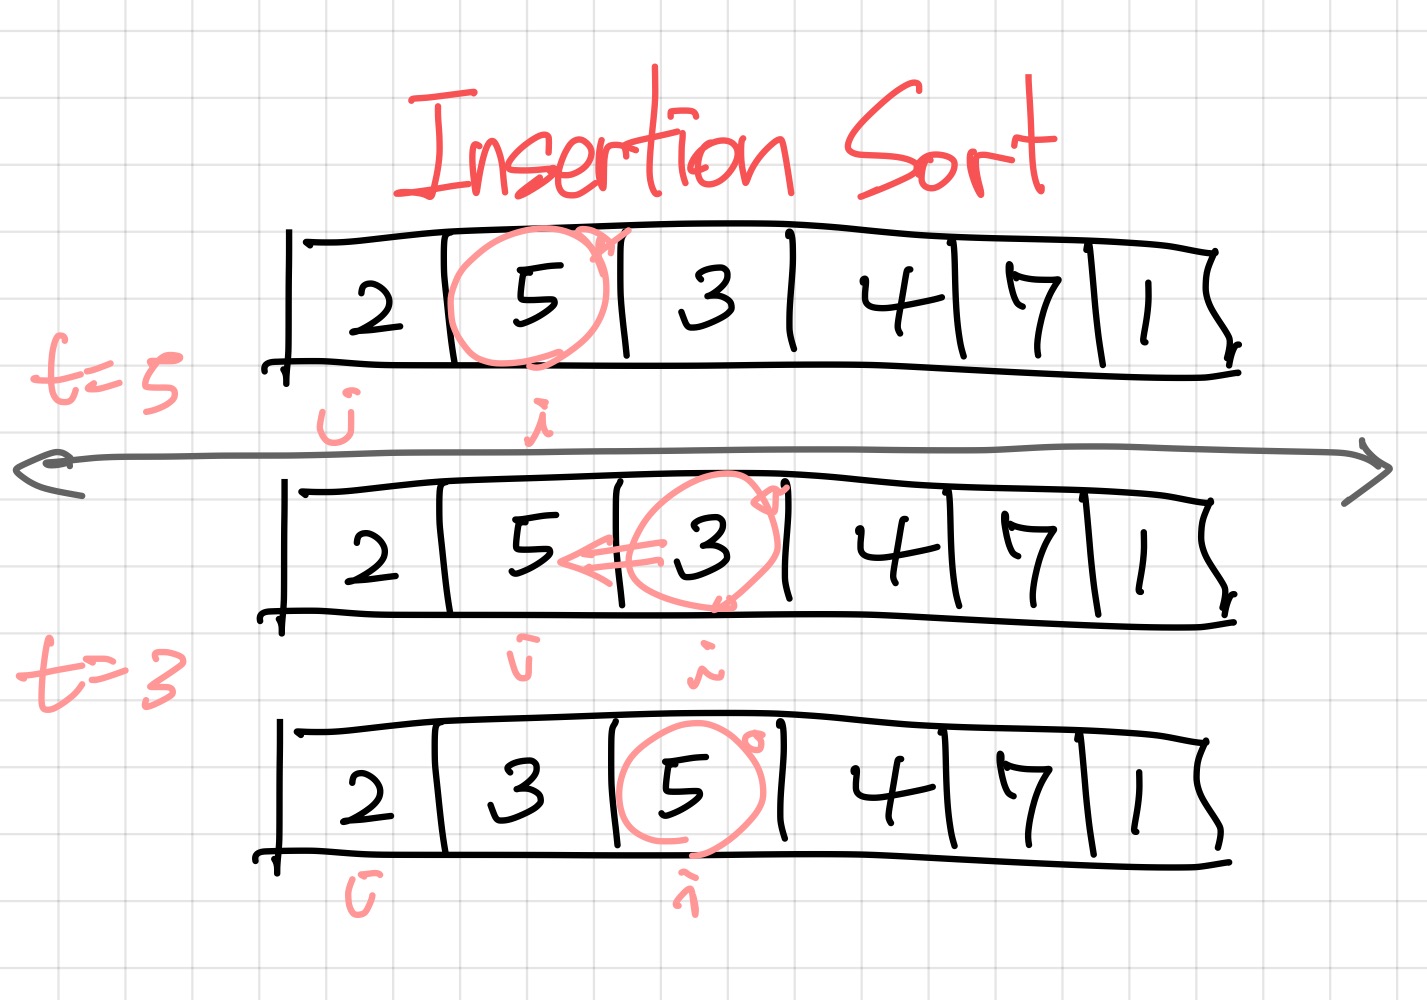 Insertion Sort
2 5 3 4 7 1
t=5
j i
2 5 3 4 7 1
j i
t=3
2 3 5 4 7 1
j i